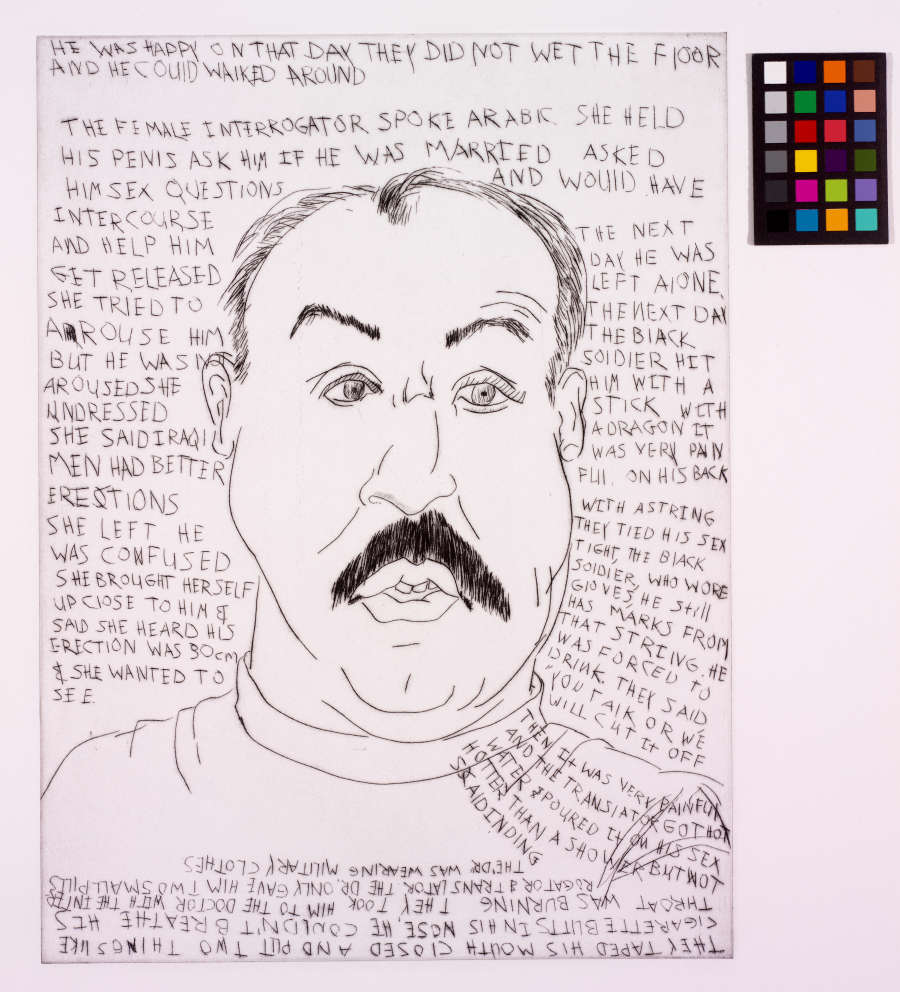 HE WAS HAPPY ON THAT DAY THEY DID NOT WET THE FLOOR
AND HE COULD WALKED AROUND
THE FEMALE INTERROGATOR SPOKE ARABIC. SHE HELD
HIS PENIS ASK HIM IF HE WAS MARRIED ASKED
HIM SEX QUESTIONS AND WOULD HAVE
INTERCOURSE
AND HELP HIM
GET RELEASED
SHE TRIED TO
ARROUSE HIM
BUT HE WAS NOT
AROUSED. SHE
UNDRESSED
SHE SAID IRAQI
MEN HAD BETTER
ERECTIONS
SHE LEFT HE
WAS CONFUSED
SHE BROUGHT HERSELF
UP CLOSE TO HIM &
SAID SHE HEARD HIS
ERECTION WAS 30cm
& SHE WANTED TO
SEE.
THE NEXT
DAY HE WAS
LEFT ALONE.
THE NEXT DAY
THE BLACK
SOLDIER HIT
HIM WITH A
STICK WITH
A DRAGON IT
WAS VERY PAIN
FUL. ON HIS BACK
WITH A STRING
THEY TIED HIS SEX
TIGHT, THE BLACK
SOLDIER, WHO WORE
GLOVES, HE Still
HAS MARKS FROM
THAT STRING. HE
WAS FORCED TO
DRINK. THEY SAID
"YOU TALK OR WE
WILL CUT IT OFF
THEN IT WAS VERY PAINFUL
AND THE TRANSLATOR GOT HOT
WATER & POURED IT ON HIS SEX
HOTTER THAN A SHOWER BUT NOT
SCALDINDING
THEY TAPED HIS MOUTH CLOSED AND PUT TWO THINGS LIKE
CIGARETTE BUTTS IN HIS NOSE. HE COULDN'T BREATHE HIS
THROAT WAS BURNING THEY TOOK HIM TO THE DOCTOR WITH THE INTER
ROGATOR & TRANSLATOR THE DR. ONLY GAVE HIM TWO SMALL PILLS
THE DR. WAS WEARING MILITARY CLOTHES